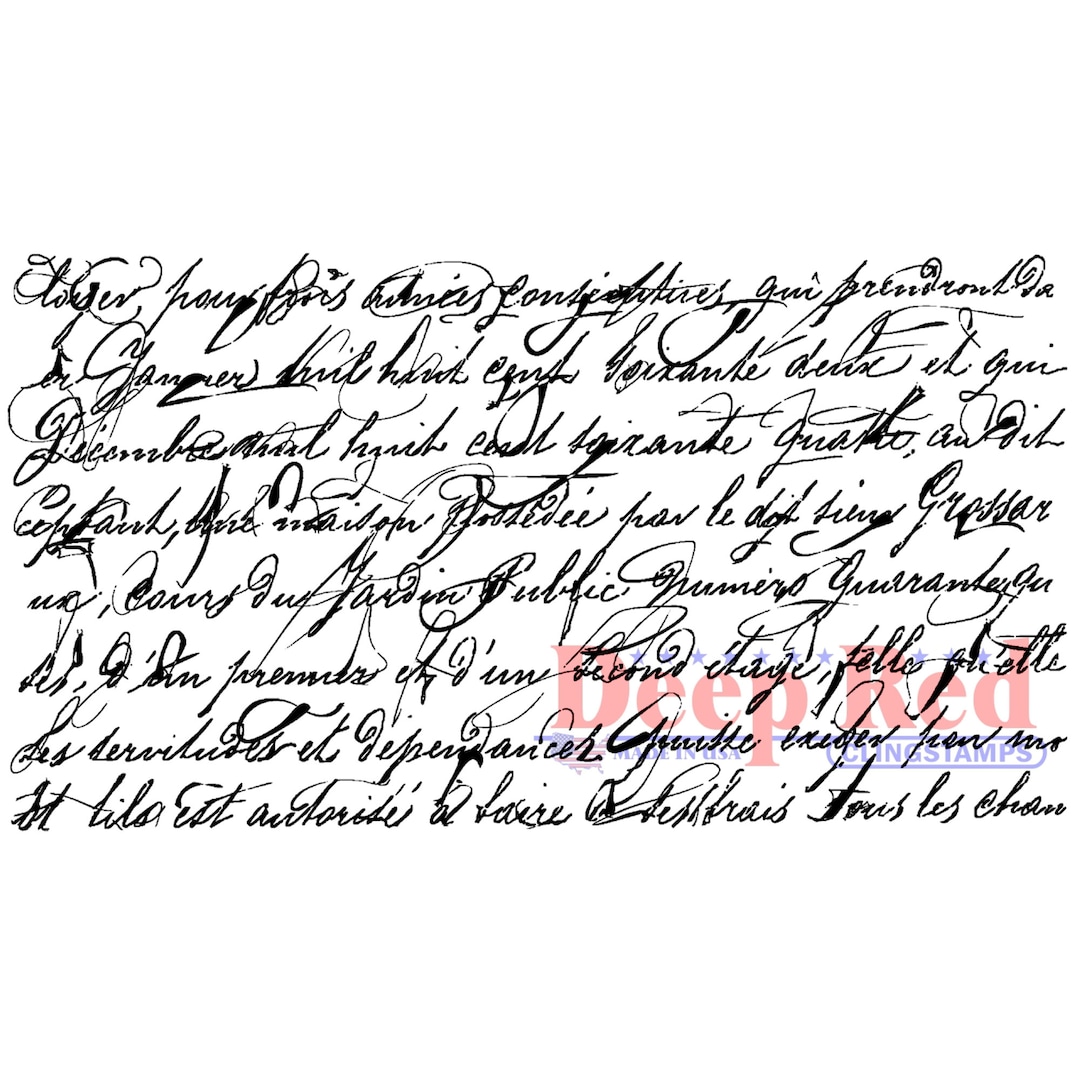 pour trois années consécutives, qui prendront da
er Janvier mil huit cent soixante deux et qui
Décembre mil huit cent soixante quatre, au dit
ceptant, une maison possédée par le dit sieur Grossar
ux, Cours du Jardin Public numéro quarante qu
sés, d'un premier et d'un second étage, telle qu'elle
Ses servitudes et dépendances puisse exiger
est autorisé à faire frais tous les chan
Deep Red
MADE IN USA CLINGSTAMPS